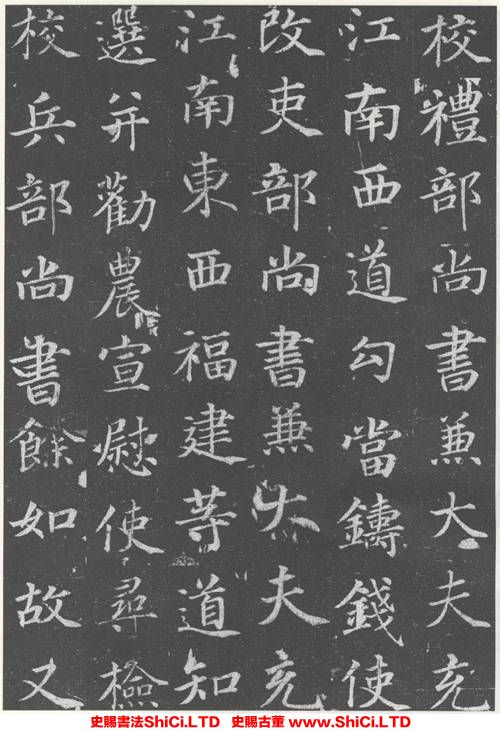 校禮部尚書兼大夫充
江南西道勾當鑄錢使
改吏部尚書兼大夫充
江南東西福建等道知
選并勸農宣慰使尋檢
校兵部尚書餘如故又
史賜書法ShiCi.LTD 史賜古董 www.ShiCi.LTD